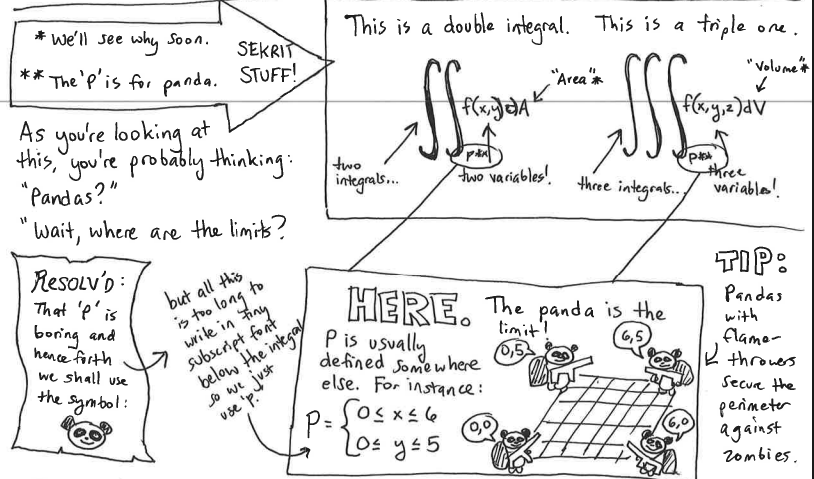 * We'll see why soon.
** The 'P' is for panda.
SEKRIT
STUFF!
This is a double integral.
∬ f(x,y)dA
P**
"Area"*
two
integrals...
two variables!
This is a triple one.
∭ f(x,y,z)dV
P**
"Volume"*
three integrals...
three
variables!
As you're looking at
this, you're probably thinking:
"Pandas?"
"Wait, where are the limits?
RESOLV'D:
That 'P' is
boring and
hence forth
we shall use
the symbol:
but all this
is too long to
write in tiny
subscript font
below the integral
so we just
use 'P.'
HERE.
P is usually
defined somewhere
else. For instance:
P = { 0 ≤ x ≤ 6
0 ≤ y ≤ 5
The panda is the
limit!
0,5
6,5
0,0
6,0
TIP:
Pandas
with
flame-
throwers
secure the
perimeter
against
zombies.